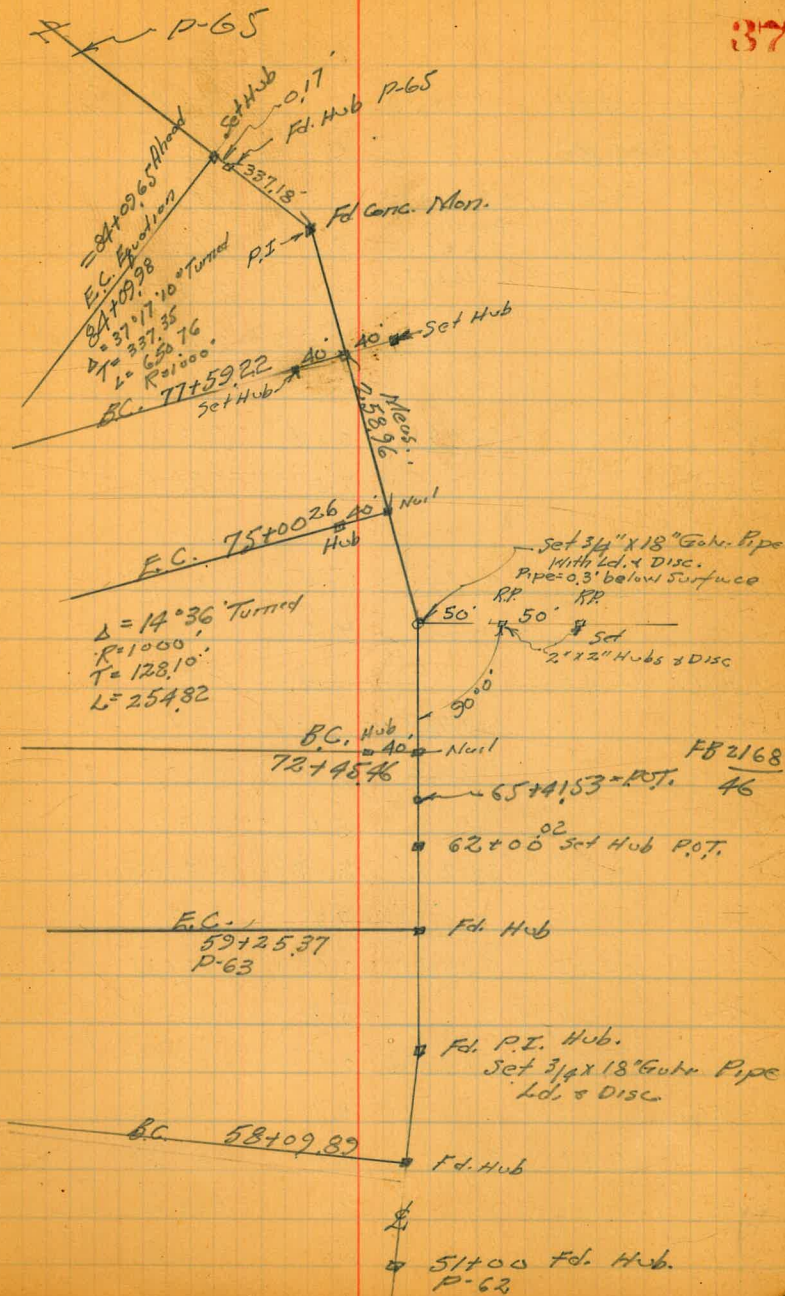 37
P-65
Set Hub
0.17'
Fd. Hub P-65
337.18'
= 84+09.65 Ahead
E.C. Equation
84+09.98
Δ = 37°17'10" Turned
T = 337.35
L = 650.76
R = 1000'
P.I.
Fd Conc. Mon.
40' 40' Set Hub
B.C. 77+59.22
Set Hub
Meas.
258.96
E.C. 75+00.26 40' Nail
Hub
Δ = 14°36' Turned
R = 1000'
T = 128.10'
L = 254.82
Set 3/4" x 18" Galv. Pipe
With Ld. & Disc.
Pipe = 0.3' below Surface
R.P. R.P.
50' 50'
Set
2" x 2" Hubs & Disc
90°0'
B.C. Hub 40' Nail
72+45.46
FB 2168
46
65+41.53 = P.O.T.
62+00.02 Set Hub P.O.T.
E.C. Fd. Hub
59+25.37
P-63
Fd. P.I. Hub.
Set 3/4 x 18" Galv. Pipe
Ld. & Disc
B.C. 58+09.89
Fd. Hub
℄
51+00 Fd. Hub.
P-62